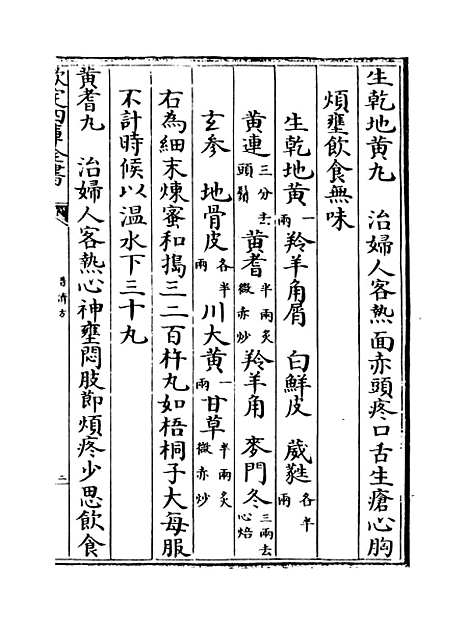 生乾地黄丸　治婦人客熱面赤頭疼口舌生瘡心胸
煩壅飲食無味
生乾地黄一兩　羚羊角屑　白鮮皮　葳蕤各半兩
黄連三分去頭鬚　黄耆半兩炙微赤炒　羚羊角　麥門冬三兩去心焙
玄参　地骨皮各半兩　川大黄一兩　甘草半兩炙微赤炒
右為細末煉蜜和搗三二百杵丸如梧桐子大每服
不計時候以温水下三十丸
黄耆丸　治婦人客熱心神壅悶肢節煩疼少思飲食
欽定四庫全書
普濟方
二